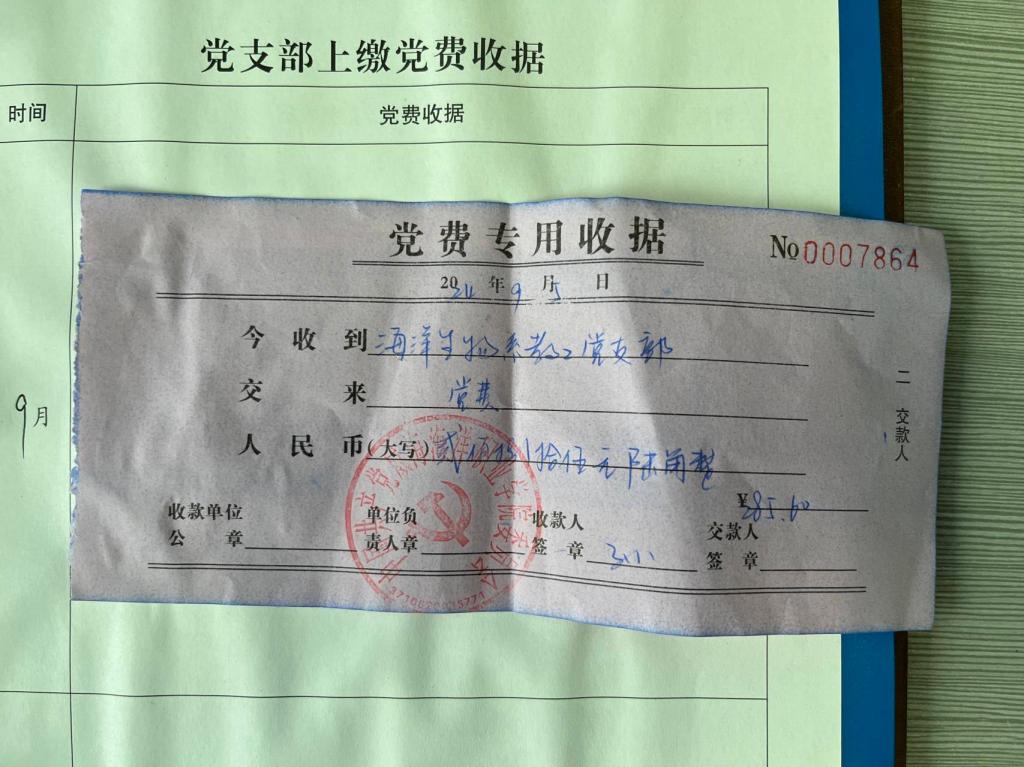 党支部上缴党费收据
时间 党费收据
9月
党费专用收据 No 0007864
2024年9月5日
今收到 海洋生物系教工党支部
交来 党费
人民币(大写) 贰佰捌拾伍元陆角整
¥285.60
收款单位公章 单位负责人章 收款人签章 交款人签章
二 交款人
中国共产党 职业学院委员会